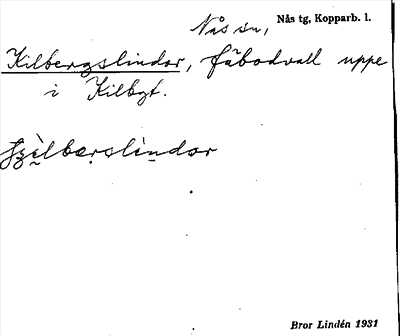 Nås sn, Nås tg, Kopparb. l.
Kilbergslindor, fäbodvall uppe
i Kilbgt.
Bror Lindén 1931